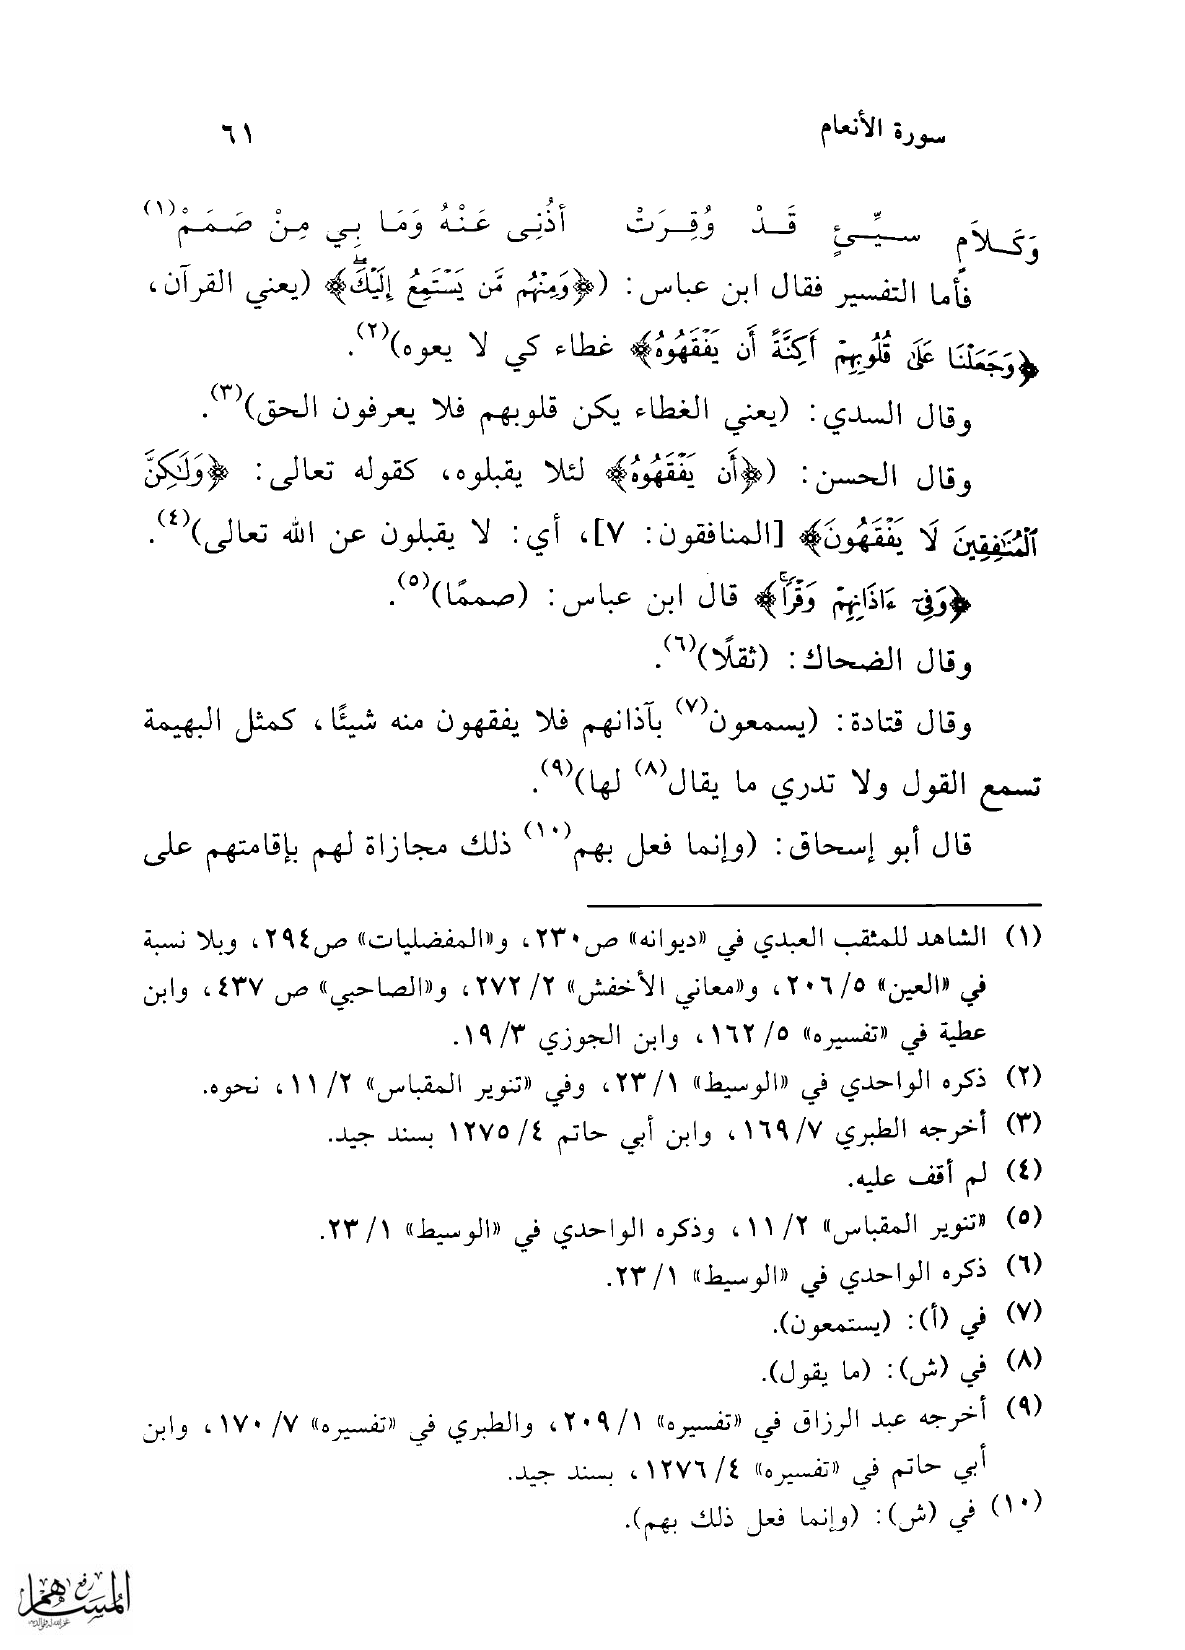 سورة الأنعام ٦١
وَكَـلاَمٍ سـيِّـئٍ قَـدْ وُقِـرَتْ أذُنِى عَـنْـهُ وَمَـا بِـي مِـنْ صَـمَـمْ(١)
فأما التفسير فقال ابن عباس: (﴿وَمِنْهُم مَّن يَسْتَمِعُ إِلَيْكَۖ﴾ (يعني القرآن،
﴿وَجَعَلْنَا عَلَىٰ قُلُوبِهِمْ أَكِنَّةً أَن يَفْقَهُوهُ﴾ غطاء كي لا يعوه)(٢).
وقال السدي: (يعني الغطاء يكن قلوبهم فلا يعرفون الحق)(٣).
وقال الحسن: (﴿أَن يَفْقَهُوهُ﴾ لئلا يقبلوه، كقوله تعالى: ﴿وَلَٰكِنَّ
ٱلْمُنَٰفِقِينَ لَا يَفْقَهُونَ﴾ [المنافقون: ٧]، أي: لا يقبلون عن الله تعالى)(٤).
﴿وَفِىٓ ءَاذَانِهِمْ وَقْرًاۚ﴾ قال ابن عباس: (صممًا)(٥).
وقال الضحاك: (ثقلًا)(٦).
وقال قتادة: (يسمعون(٧) بآذانهم فلا يفقهون منه شيئًا، كمثل البهيمة
تسمع القول ولا تدري ما يقال(٨) لها)(٩).
قال أبو إسحاق: (وإنما فعل بهم(١٠) ذلك مجازاة لهم بإقامتهم على
(١) الشاهد للمثقب العبدي في «ديوانه» ص٢٣٠، و«المفضليات» ص٢٩٤، وبلا نسبة
في «العين» ٥/ ٢٠٦، و«معاني الأخفش» ٢/ ٢٧٢، و«الصاحبي» ص ٤٣٧، وابن
عطية في «تفسيره» ٥/ ١٦٢، وابن الجوزي ٣/ ١٩.
(٢) ذكره الواحدي في «الوسيط» ١/ ٢٣، وفي «تنوير المقباس» ٢/ ١١، نحوه.
(٣) أخرجه الطبري ٧/ ١٦٩، وابن أبي حاتم ٤/ ١٢٧٥ بسند جيد.
(٤) لم أقف عليه.
(٥) «تنوير المقباس» ٢/ ١١، وذكره الواحدي في «الوسيط» ١/ ٢٣.
(٦) ذكره الواحدي في «الوسيط» ١/ ٢٣.
(٧) في (أ): (يستمعون).
(٨) في (ش): (ما يقول).
(٩) أخرجه عبد الرزاق في «تفسيره» ١/ ٢٠٩، والطبري في «تفسيره» ٧/ ١٧٠، وابن
أبي حاتم في «تفسيره» ٤/ ١٢٧٦، بسند جيد.
(١٠) في (ش): (وإنما فعل ذلك بهم).